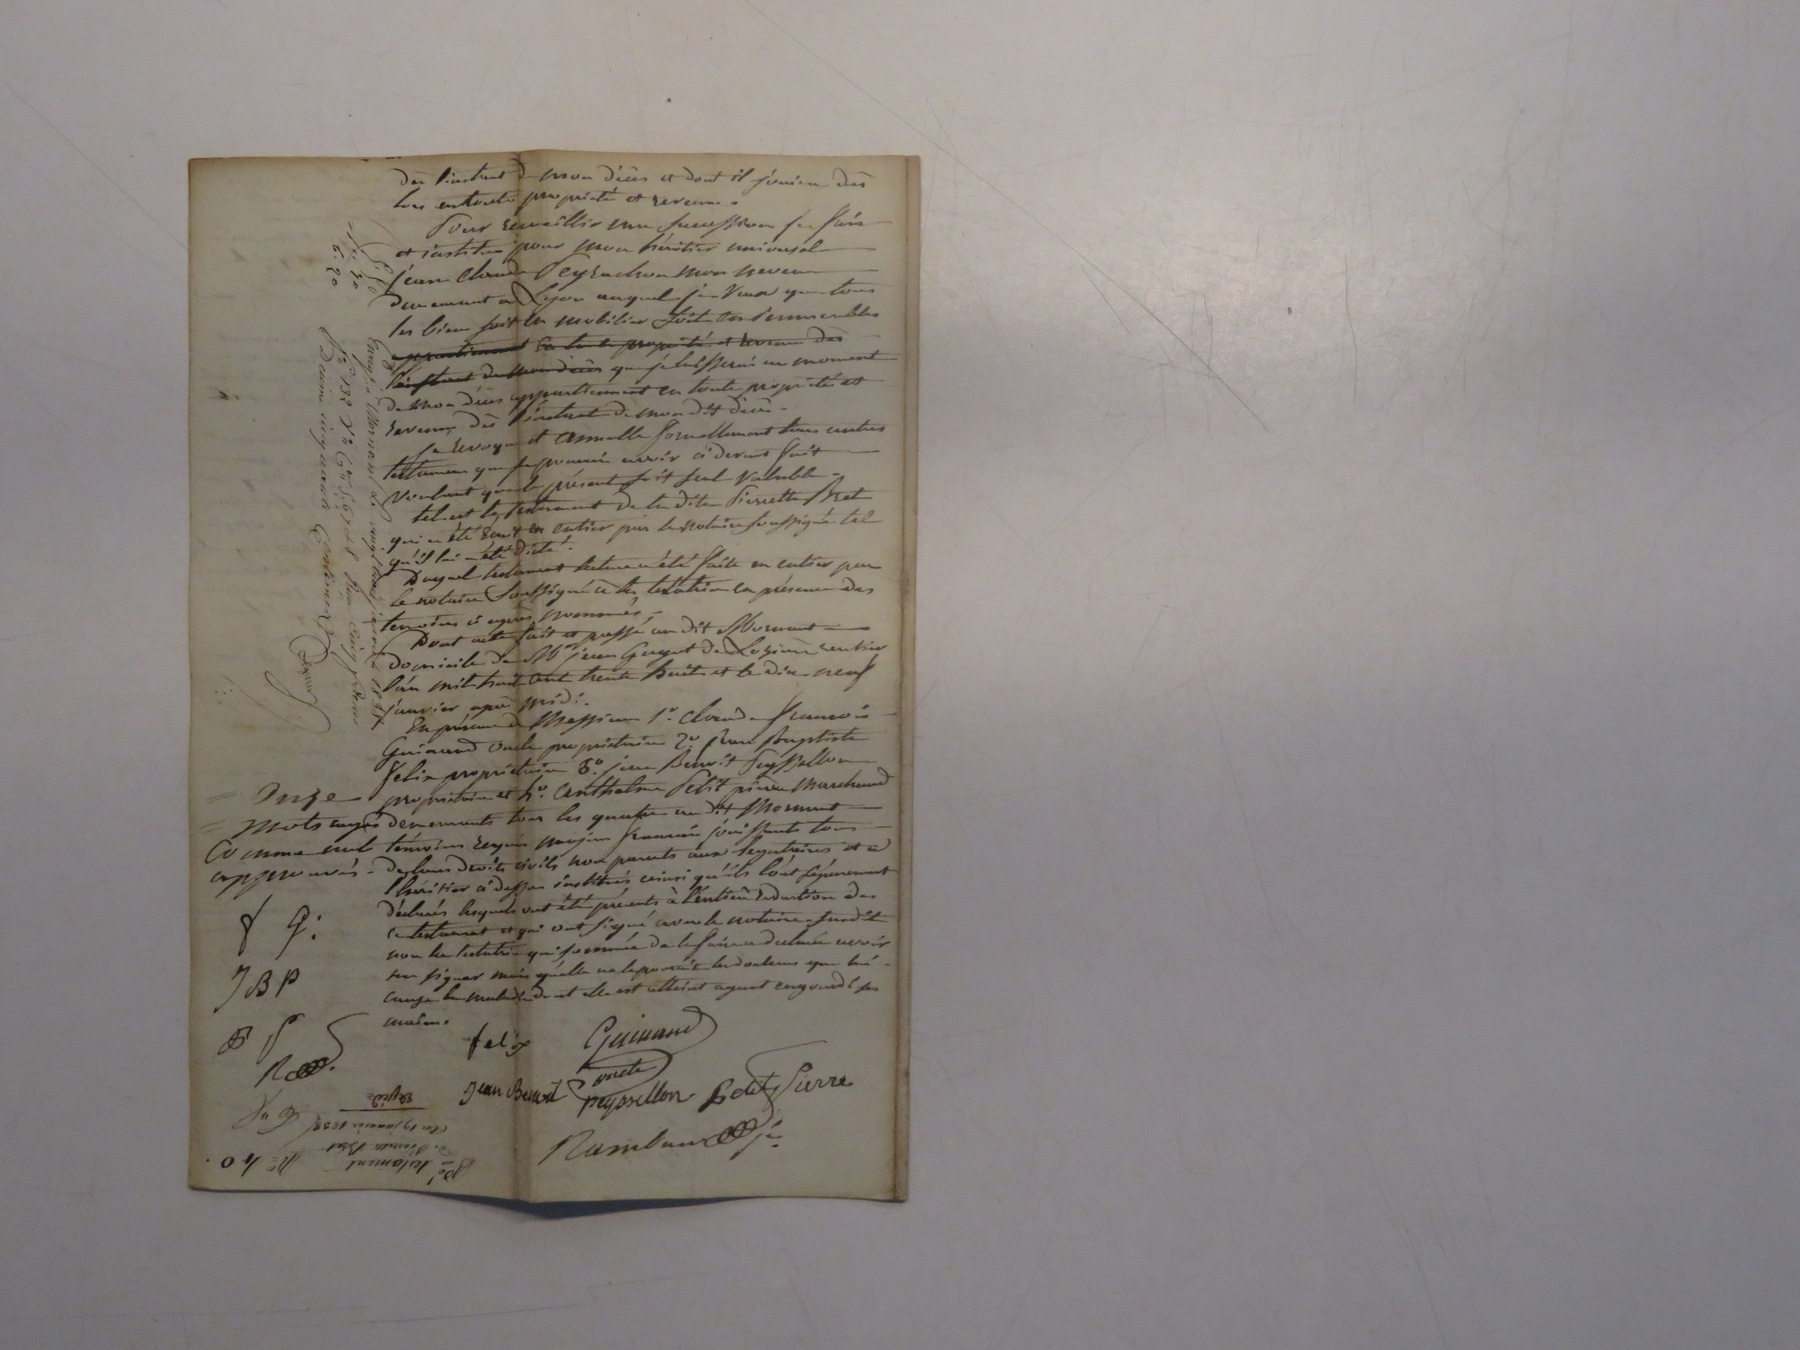 dès l'instant de mon décès et dont il jouira dès
lors en toute propriété et revenu.
Pour recueillir ma succession je fais
et institue pour mon héritier universel
jean Claude Peyrachon mon neveu
demeurant à Lyon auquel je veux que tous
les biens soit en mobilier soit en immeubles
appartiennent en toute propriété et revenu dès
l'instant de mon décès que je laisserai au moment
de mon décès appartiennent en toute propriété et
revenus dès l'instant de mon dit décès.
Je révoque et annulle formellement tous autres
testamens que je pourrais avoir ci devant fait
voulant que le présent soit seul valable.
tel est le testament de la dite Pierrette Bret
qui a été écrit en entier par le notaire soussigné tel
qu'il lui a été dicté.
Duquel testament lecture a été faite en entier par
le notaire soussigné à la testatrice en présence des
temoins ci après nommés.
Dont acte fait et passé au dit Mornant
domicile de Mr jean Guyot de rentier
l'an mil huit cent trente huit et le dix neuf
janvier après midi.
En présence de Messieurs 1o. Claude François
Guinand oncle propriétaire 2o. jean Baptiste
Felix propriétaire 3o. jean Benoît Peyssellon
propriétaire et 4o. Anthelme Petit pierre marchand
demeurants tous les quatre au dit Mornant
témoins requis majeurs français jouissants tous
de leurs droits civils non parents aux légataires et à
l'héritier ci dessus institués ainsi qu'ils l'ont séparément
déclarés lesquels ont été présents à l'entière rédaction de
ce testament et qui ont signé avec le notaire susdit
non la testatrice qui sommée de le faire a déclaré avoir
su signer mais qu'elle ne le pouvait les douleurs que lui
cause la maladie dont elle est atteint ayant engourdi ses
mains.
onze
mots rayés
comme nul
approuvés.
f G:
J B P
P
R
felix Guinand
oncle
Jean Benoît peyssellon Petit Pierre
Rambaud
N° 40.
testament
de Pierrette Bret
du 19 janvier 1838
Expédié
5. 50
2. 20
Enregistré à Mornant le vingt janvier 1838